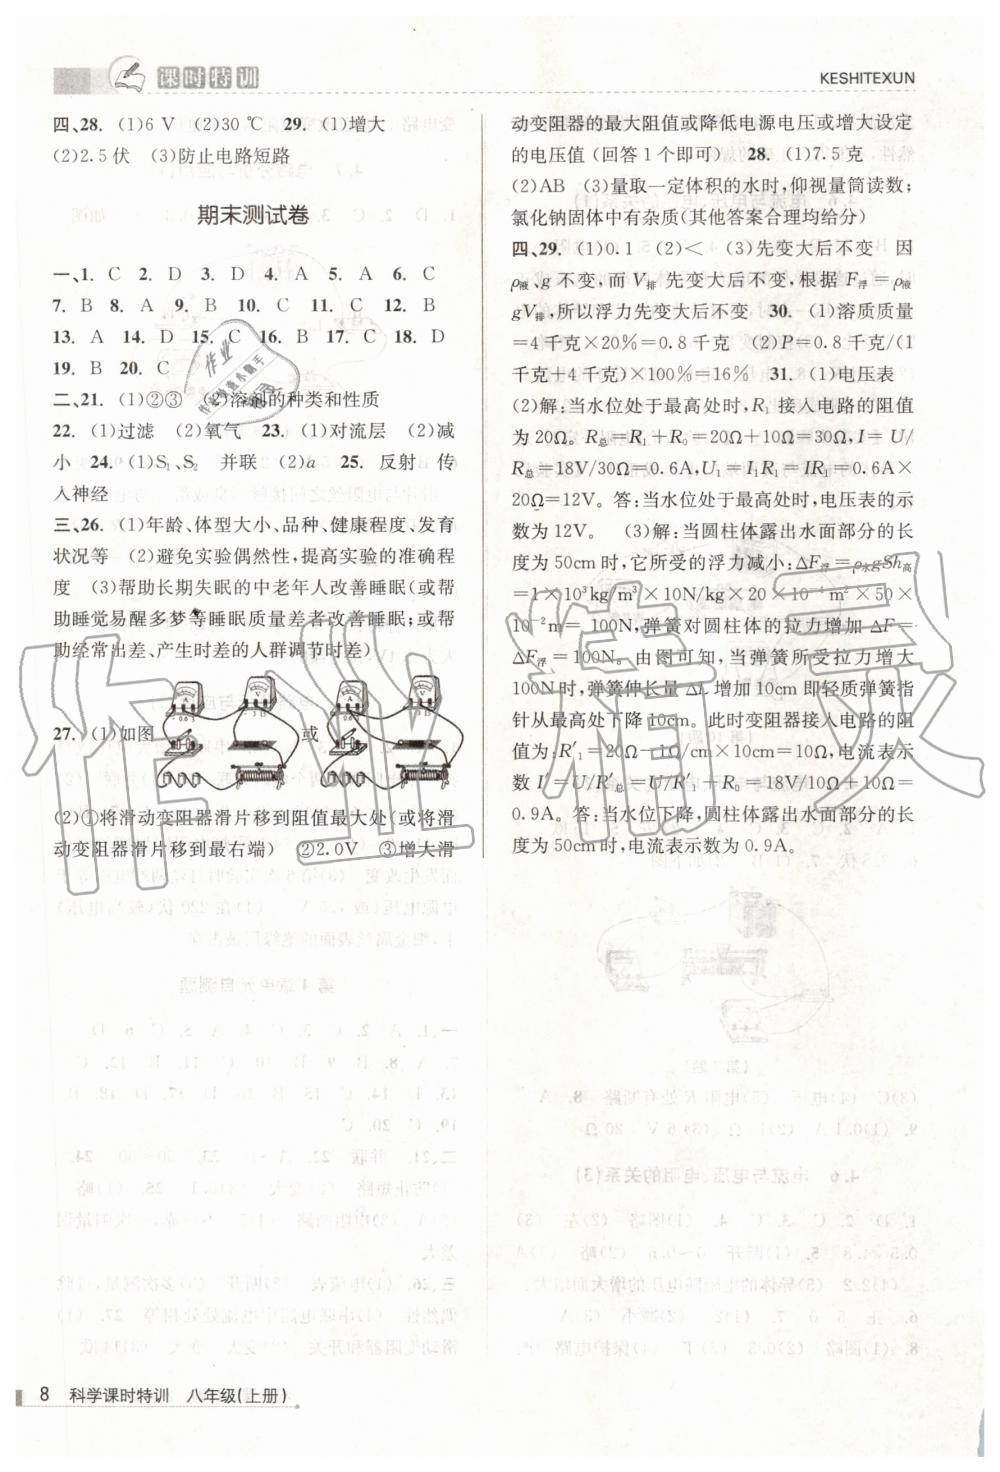 课时特训
KESHITEXUN
四、28. (1)6 V (2)30 ℃ 29. (1)增大
(2)2.5伏 (3)防止电路短路
期末测试卷
一、1. C 2. D 3. D 4. A 5. A 6. C
7. B 8. A 9. B 10. C 11. C 12. B
13. A 14. D 15. C 16. B 17. C 18. D
19. B 20. C
二、21. (1)②③ (2)溶剂的种类和性质
22. (1)过滤 (2)氧气 23. (1)对流层 (2)减
小 24. (1)S₁、S₂ 并联 (2)a 25. 反射 传
入神经
三、26. (1)年龄、体型大小、品种、健康程度、发育
状况等 (2)避免实验偶然性,提高实验的准确
度 (3)帮助长期失眠的中老年人改善睡眠(或帮
助睡觉易醒多梦等睡眠质量差者改善睡眠;或帮
助经常出差、产生时差的人群调节时差)
27. (1)如图 或
(2)①将滑动变阻器滑片移到阻值最大处(或将滑
动变阻器滑片移到最右端) ②2.0V ③增大滑
动变阻器的最大阻值或降低电源电压或增大设定
的电压值(回答1个即可) 28. (1)7.5克
(2)AB (3)量取一定体积的水时,仰视量筒读数;
氯化钠固体中有杂质(其他答案合理均给分)
四、29. (1)0.1 (2)< (3)先变大后不变 因
ρ液、g 不变,而V排先变大后不变,根据F浮=ρ液
gV排,所以浮力先变大后不变 30. (1)溶质质量
=4千克×20%=0.8千克 (2)P=0.8千克/(1
千克+4千克)×100%=16% 31. (1)电压表
(2)解:当水位处于最高处时,R₁接入电路的阻值
为20Ω。R总=R₁+R₀=20Ω+10Ω=30Ω,I=U/
R总=18V/30Ω=0.6A,U₁=I₁R₁=IR₁=0.6A×
20Ω=12V。答:当水位处于最高处时,电压表的示
数为12V。 (3)解:当圆柱体露出水面部分的长
度为50cm时,它所受的浮力减小:ΔF浮=ρ水gSh高
=1×10³kg/m³×10N/kg×20×10⁻⁴m²×50×
10⁻²m=100N,弹簧对圆柱体的拉力增加ΔF=
ΔF浮=100N。由图可知,当弹簧所受拉力增大
100N时,弹簧伸长量ΔL增加10cm即轻质弹簧指
针从最高处下降10cm。此时变阻器接入电路的阻
值为:R′₁=20Ω-1Ω/cm×10cm=10Ω,电流表示
数I′=U/R′总=U/R′₁+R₀=18V/10Ω+10Ω=
0.9A。答:当水位下降,圆柱体露出水面部分的长
度为50cm时,电流表示数为0.9A。
作业精灵
8 科学课时特训 八年级(上册)